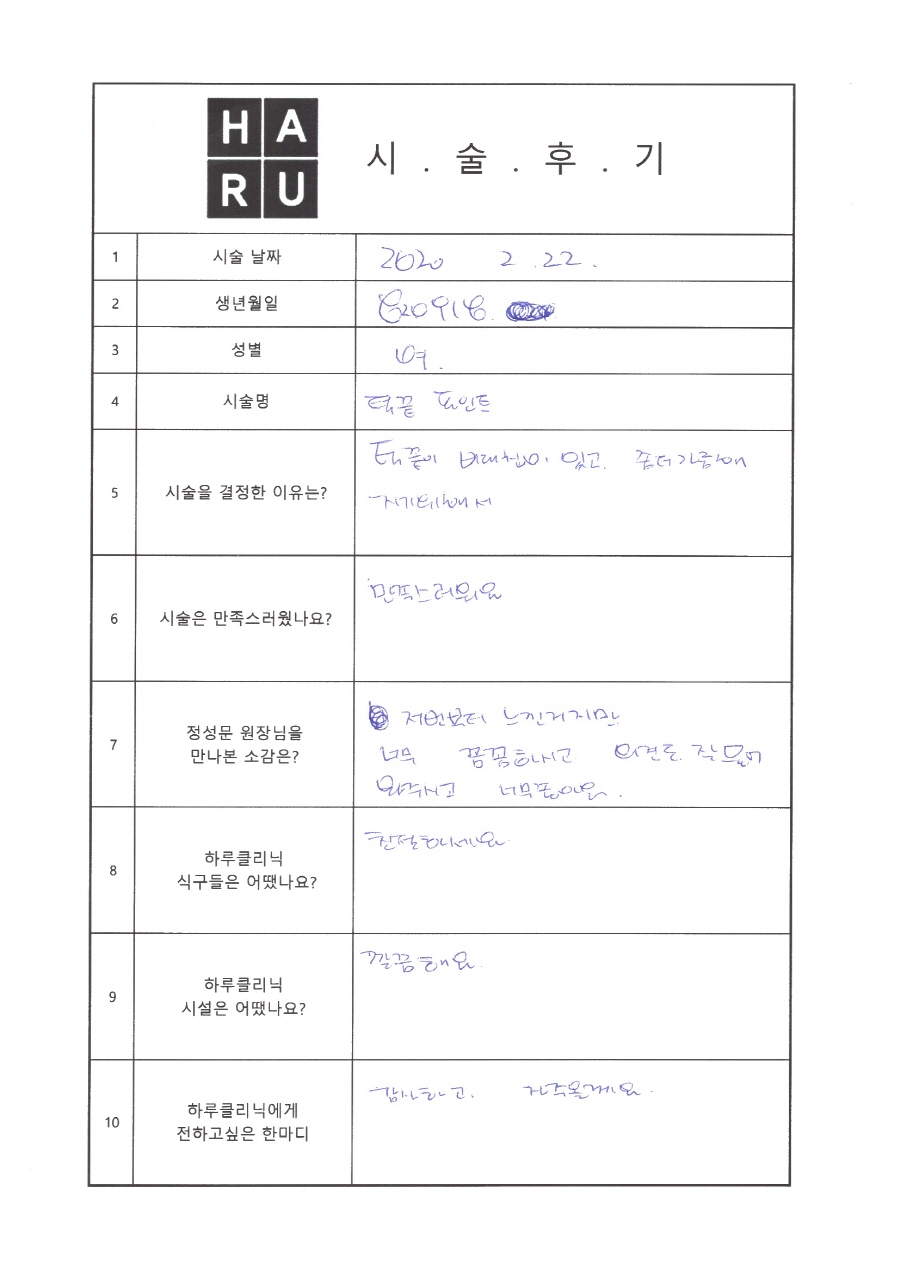 HA
RU
시.술.후.기
1 시술 날짜 2020 2.22.
2 생년월일
3 성별 여.
4 시술명 턱끝 포인트
5 시술을 결정한 이유는? 턱끝이 비대칭이 있고. 좀더 갸름해
지기위해서
6 시술은 만족스러웠나요? 만족스러워요
7 정성문 원장님을
만나본 소감은?
저번부터 느낀거지만
너무 꼼꼼하시고 의견도 잘
주시고
8 하루클리닉
식구들은 어땠나요?
친절하세요.
9 하루클리닉
시설은 어땠나요?
깔끔해요.
10 하루클리닉에게
전하고싶은 한마디
감사하고. 자주올게요.